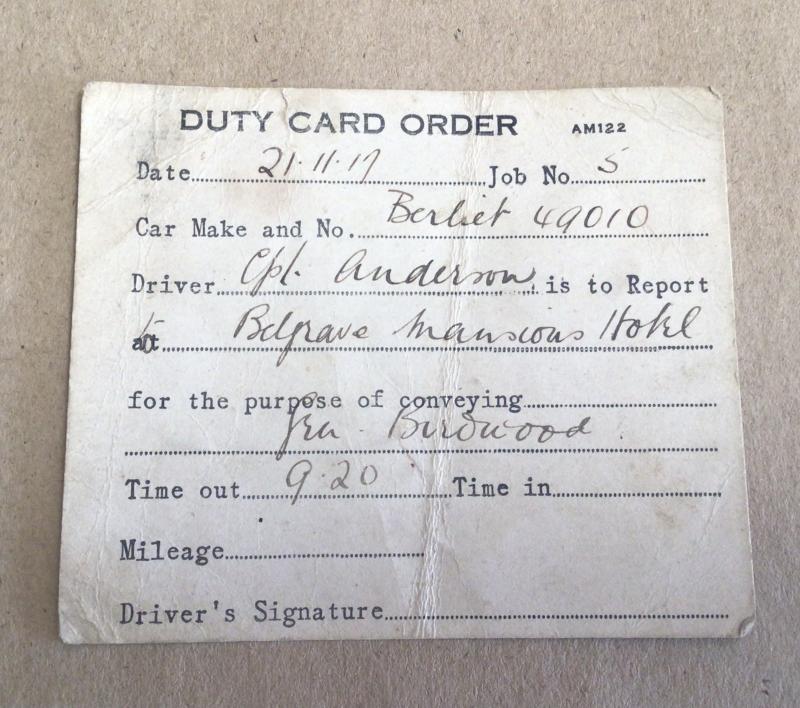 DUTY CARD ORDER AM122
Date 21.11.17 Job No. 5
Car Make and No. Berliet 49010
Driver Cpl. Anderson is to Report
to Belgrave Mansions Hotel
for the purpose of conveying
Gen. Birdwood.
Time out 9.20 Time in
Mileage
Driver's Signature